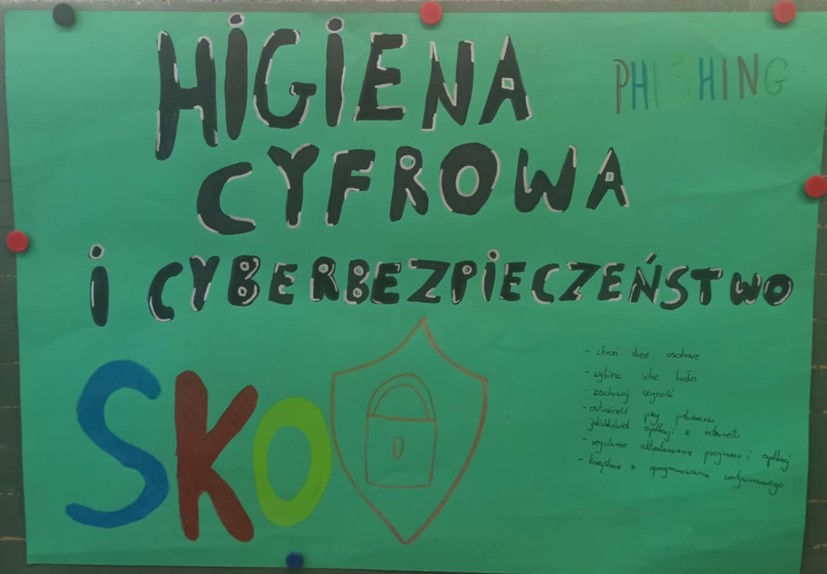 HIGIENA
PHISHING
CYFROWA
i CYBERBEZPIECZEŃSTWO
SKO
- chroń dane osobowe
- wybierz silne hasło
- zachowaj czujność
- ostrożność przy pobieraniu
jakichkolwiek aplikacji z internetu
- regularne aktualizowanie programów i aplikacji
- korzystanie z oprogramowania antywirusowego